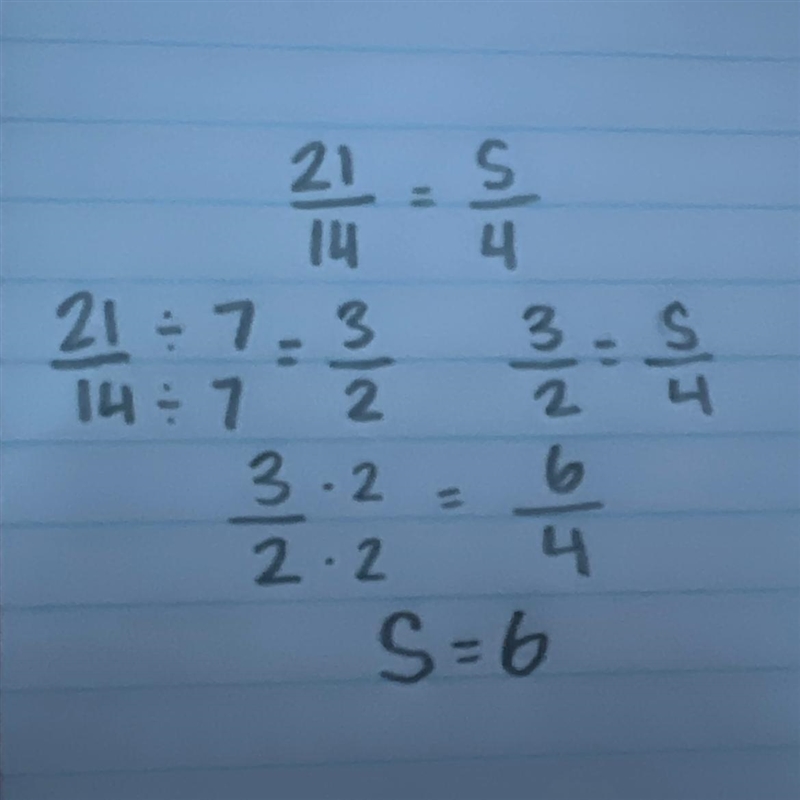 21/14 = S/4
21/14 ÷ 7/÷ 7 = 3/2   3/2 = S/4
3/2 · 2/· 2 = 6/4
S = 6